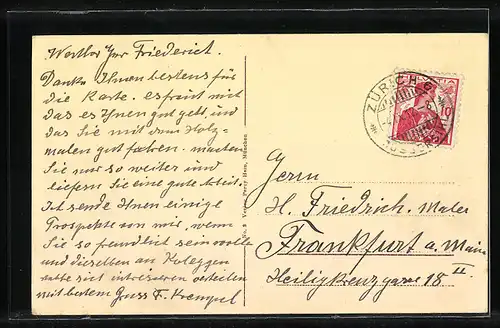 Werther Herr Friederich.
Danke Ihnen bestens für
die Karte. es freut mich
das es Ihnen gut geht, und
das Sie mit dem Holz-
malen gut fahren. machen
Sie nur so weiter und
liefern Sie eine gute Arbeit.
Ich sende Ihnen einige
Prospekte von mir, wenn
Sie so freundlich sein wollen
und dieselben an Kolegen
sich interesieren verteilen
mit bestem Gruss F. Krempel
Verlag Percy Hein, München.
ZÜRICH
Herrn
H. Friedrich. Maler
Frankfurt a. Main
Heiligkreuzgasse 18 II